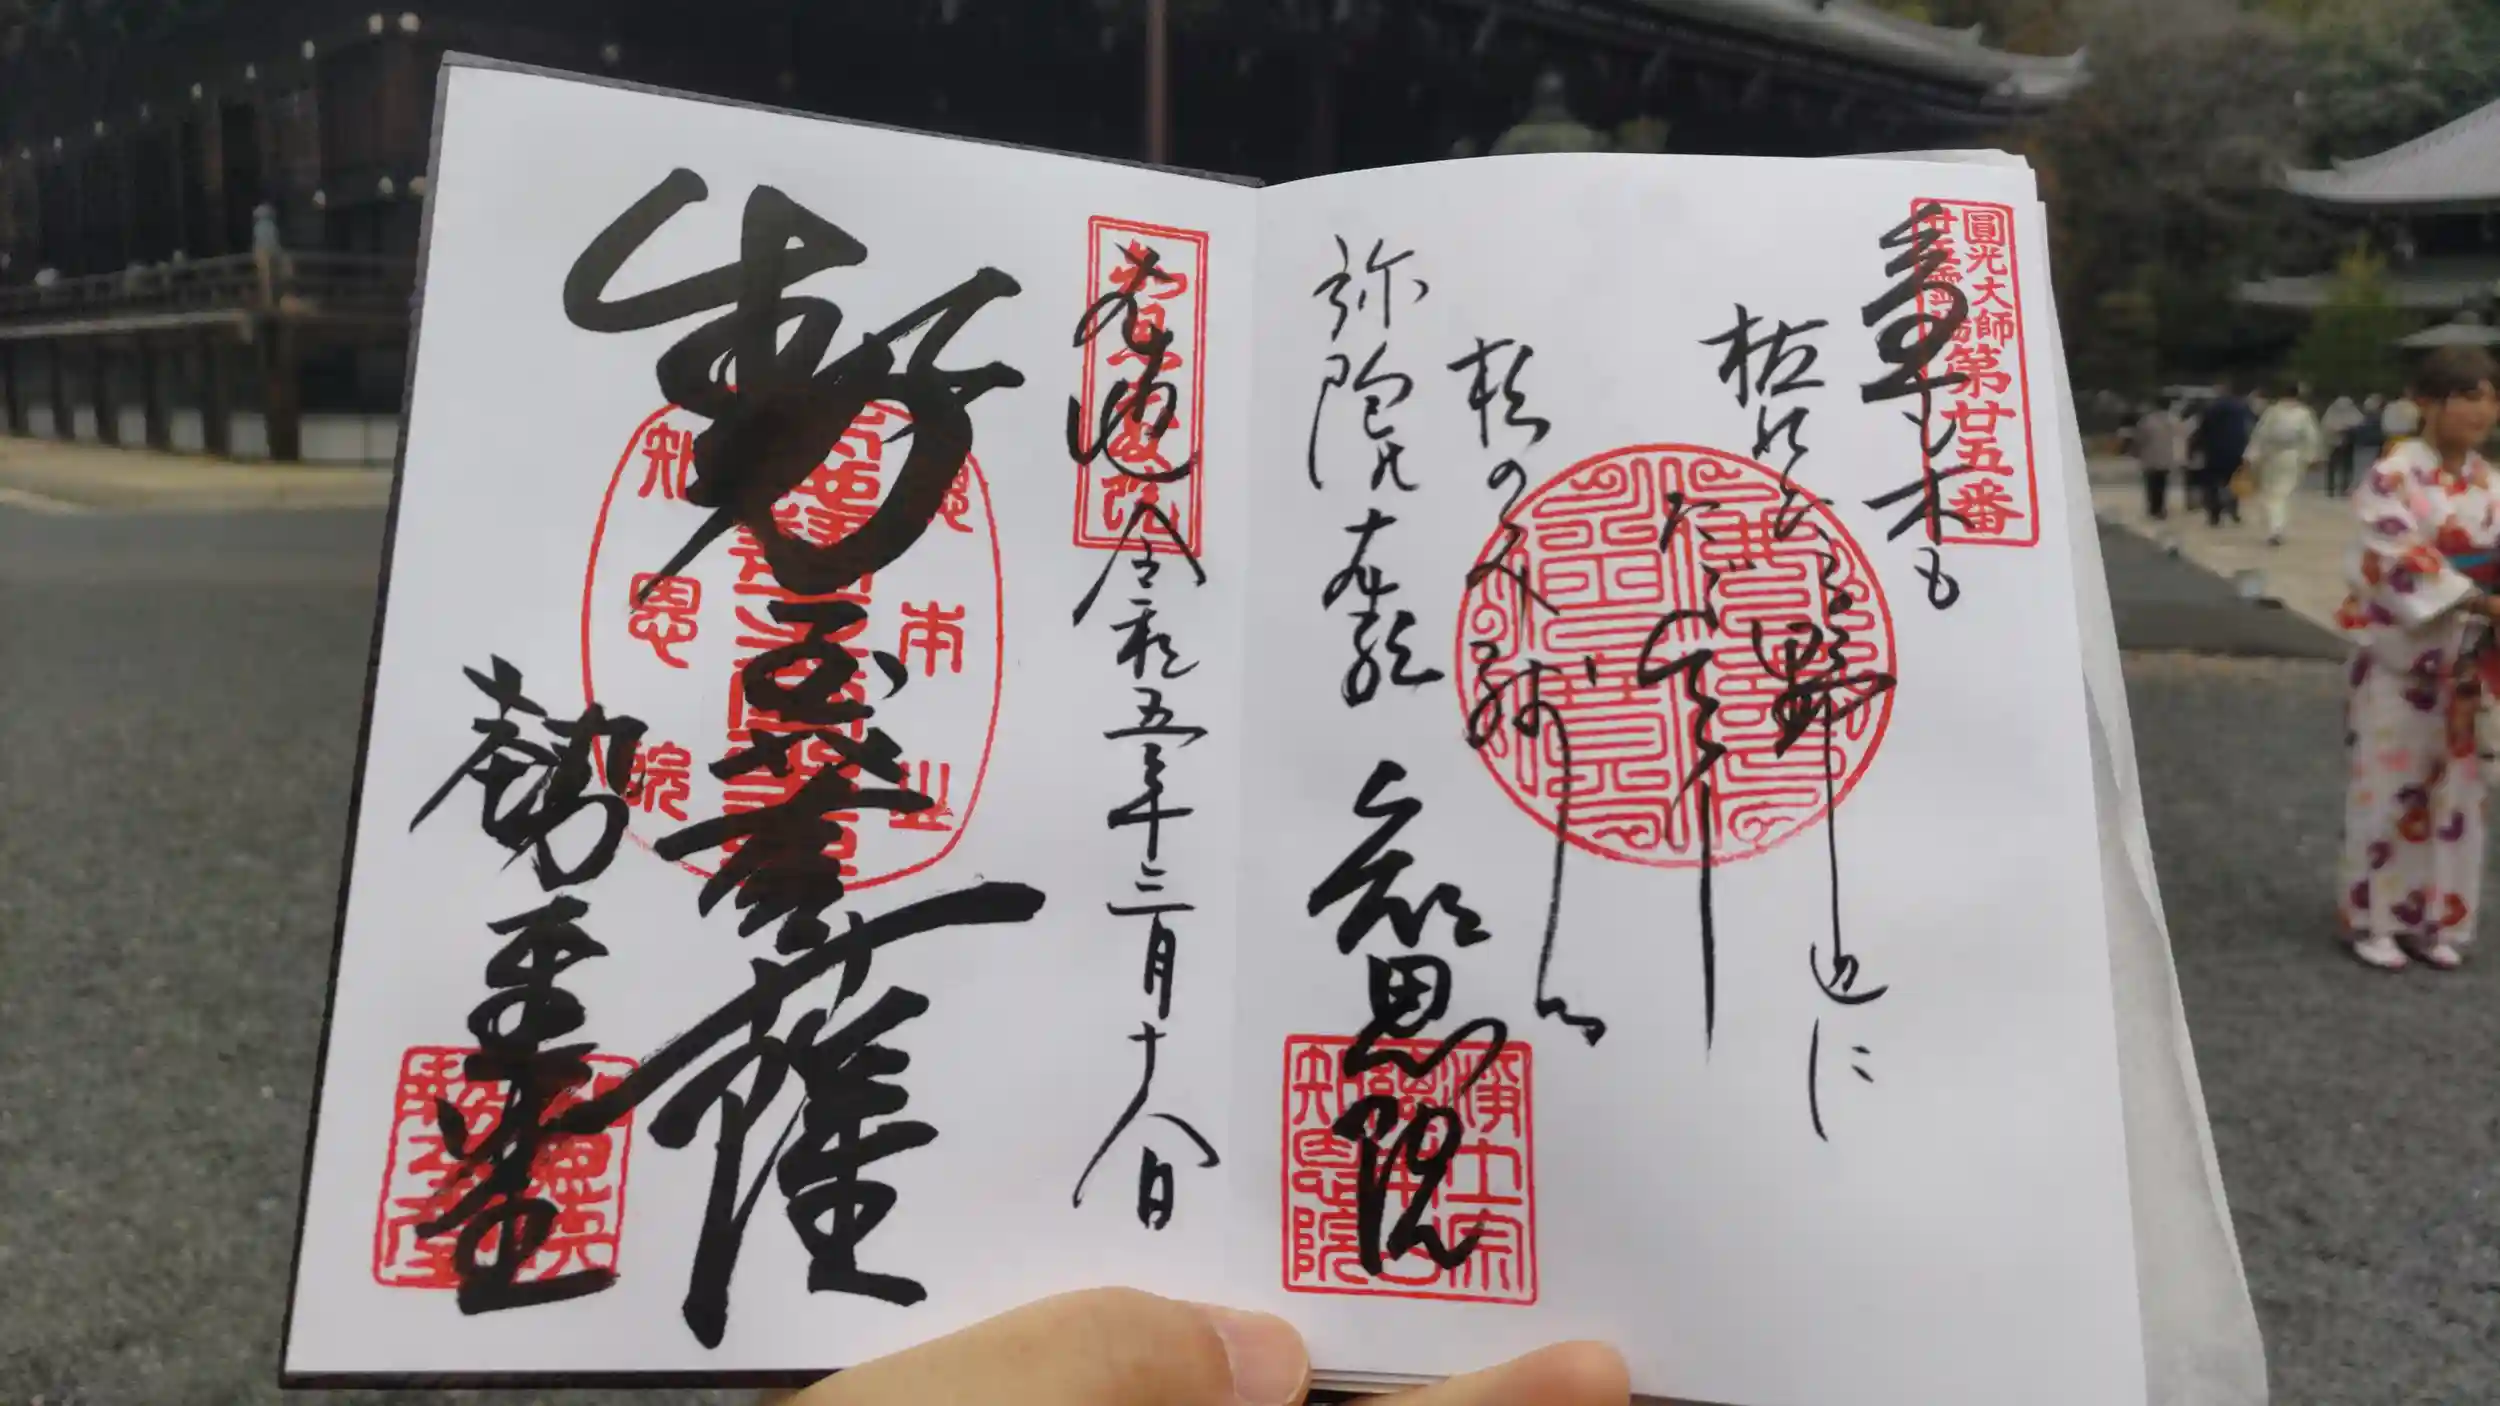 圓光大師
廿五霊場
第廿五番
草も木も
枯れたる野辺に
たゞひとり
松のミ残る
弥陀乃本願
知恩院
浄土宗
總本山
知恩院
奉拝
令和五年三月十八日
勢至菩薩
總本山
知恩院
勢至堂